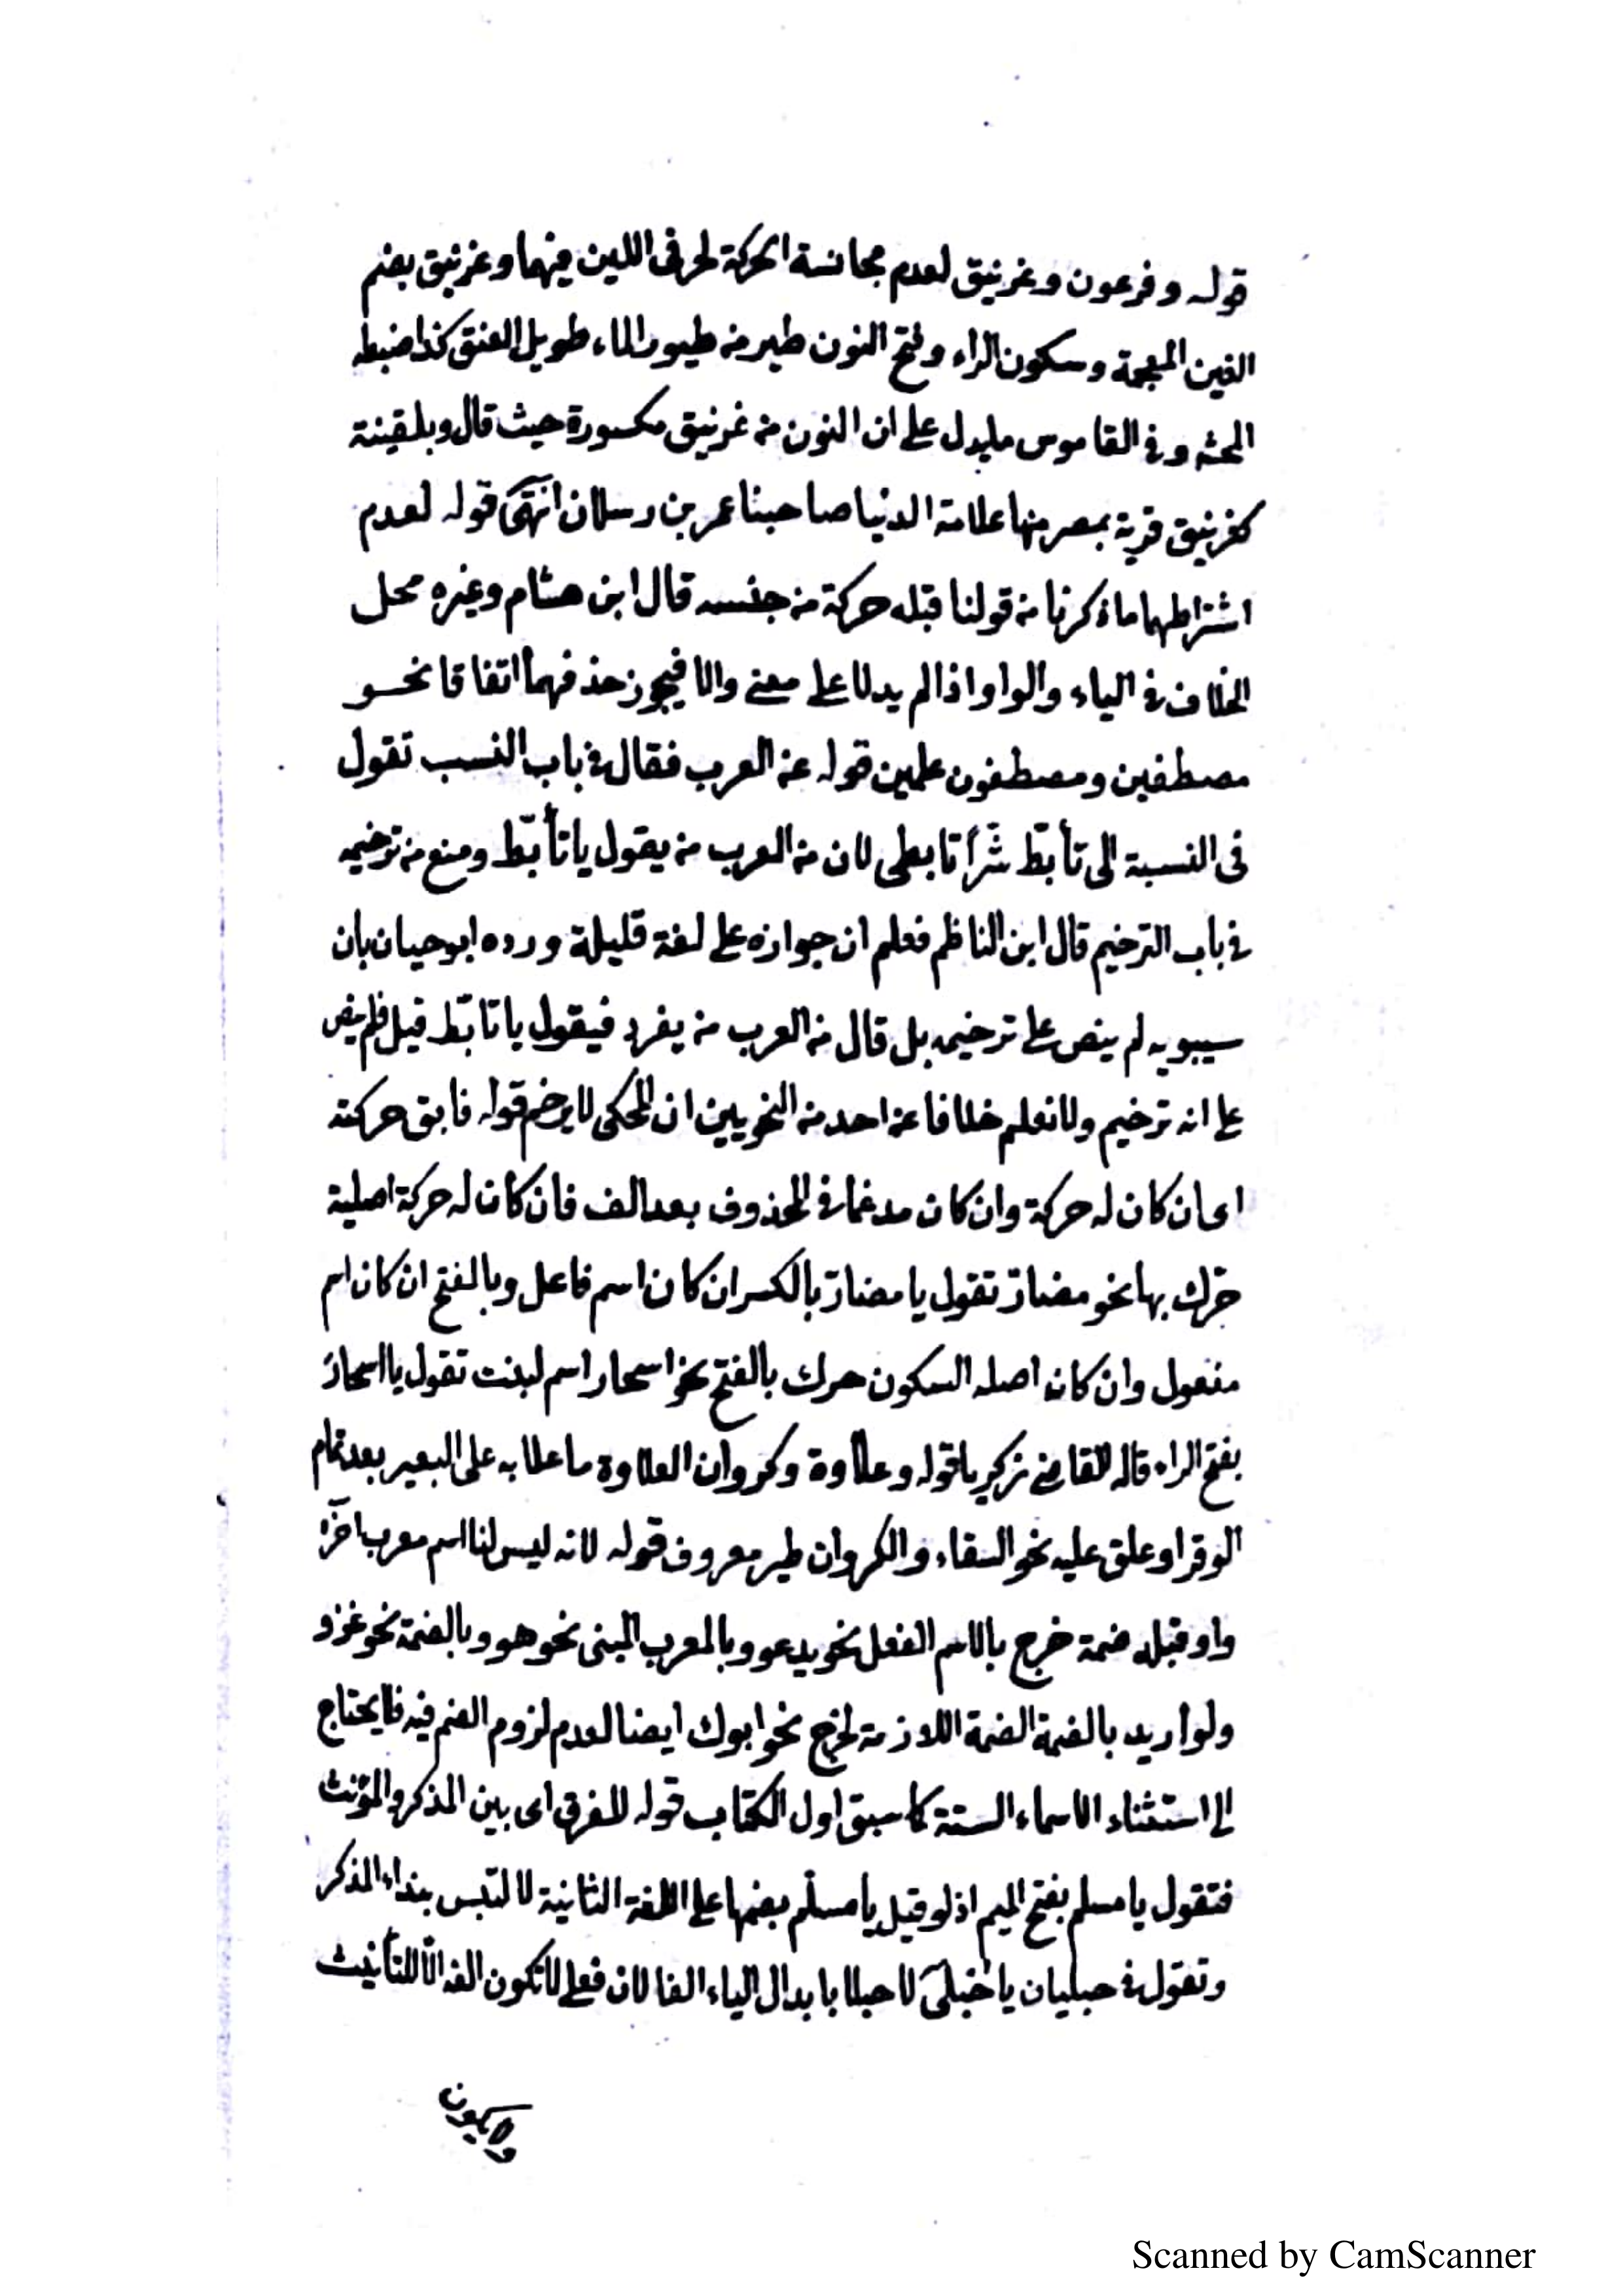 قوله وفرعون وغرنيق لعدم مجانسة الحركة لحرفى اللين فيهما وغرنيق بضم
الغين المعجمة وسكون الراء وفتح النون طير من طيور الماء طويل العنق كذا ضبطه
المحشه وفى القاموس ما يدل على ان النون من غرنيق مكسورة حيث قال وبلقينة
كغرنيق قرية بمصر منها علامة الدنيا صاحبنا عمر بن رسلان انتهى قوله لعدم
اشتراطهما ما ذكرنا من قولنا قبله حركة من جنسه قال ابن هشام وغيره محل
الخلاف فى الياء والواو اذا لم يدلا على معنى والا فيجوز حذفهما اتفاقا نحو
مصطفين ومصطفون علمين قوله عن العرب فقال فى باب النسب تقول
فى النسبة الى تأبّط شرّاً تابطى لان من العرب من يقول يا تأبّط ومنع من ترخيمه
فى باب الترخيم قال ابن الناظم فعلم ان جوازه على لغة قليلة ورده ابو حيان بان
سيبويه لم ينص على ترخيمه بل قال من العرب من يفرد فيقول يا تابّط قيل فلم ينص
على انه ترخيم ولا نعلم خلافا عن احد من النحويين ان المحكى لا يرخم قوله فابق حركته
اى ان كان له حركة وان كان مدغما فى المحذوف بعد الف فان كان له حركة اصلية
حرّك بها نحو مضارّ تقول يا مضارّ بالكسر ان كان اسم فاعل وبالفتح ان كان اسم
مفعول وان كان اصله السكون حرك بالفتح نحو اسحار اسم لبنت تقول يا اسحارَ
بفتح الراء قاله القاضى زكريا قوله وعلاوة وكروان العلاوة ما علا به على البعير بعد تمام
الوقر او علق عليه نحو السقاء والكروان طير معروف قوله لانه ليس لنا اسم معرب آخره
واو قبله ضمة خرج بالاسم الفعل نحو يدعو وبالمعرب المبنى نحو هو وبالضمة نحو غزو
ولو اريد بالضمة الضمة اللازمة لخرج نحو ابوك ايضا لعدم لزوم الضم فيه فلا يحتاج
الى استثناء الاسماء الستة كما سبق اول الكتاب قوله للفرق اى بين المذكر والمؤنث
فتقول يا مسلم بفتح الميم اذ لو قيل يا مسلم بضمها على اللغة الثانية لالتبس بنداء المذكر
وتقول فى حبليان يا حُبلَىَ لا حبلا بابدال الياء الفا لان فعلى لا تكون الفه الّا للتأنيث
Scanned by CamScanner